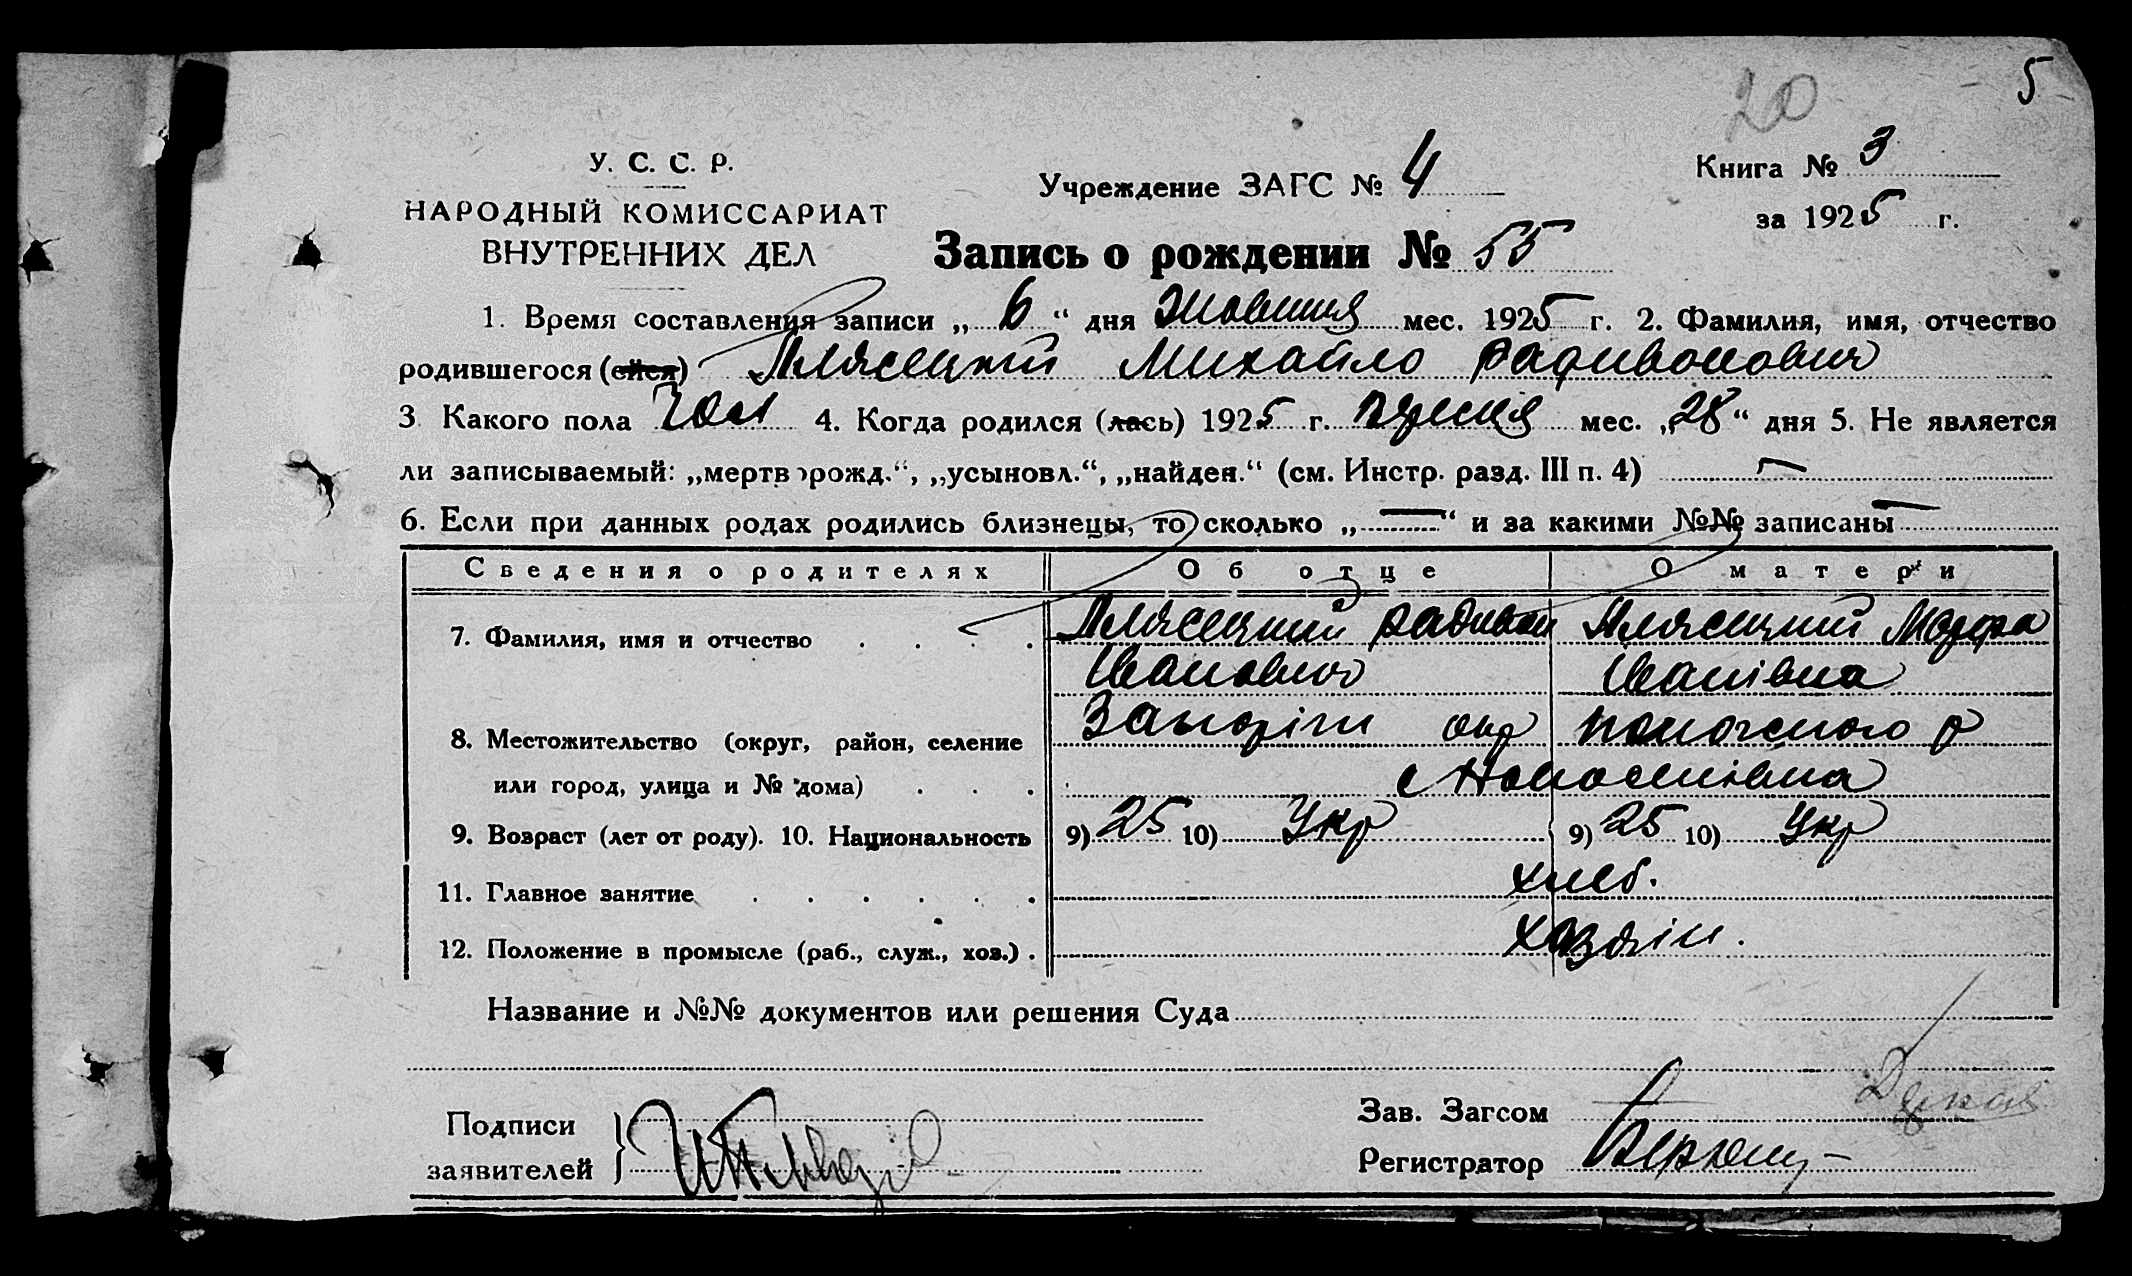 20 5
У. С. С. Р.
НАРОДНЫЙ КОМИССАРИАТ
ВНУТРЕННИХ ДЕЛ
Учреждение ЗАГС № 4
Книга № 3
за 1925 г.
Запись о рождении № 55
1. Время составления записи „ 6 “ дня Жовтня мес. 1925 г. 2. Фамилия, имя, отчество
родившегося (ейся) Михайло Радивонович
3 Какого пола Чол 4. Когда родился (лась) 1925 г. вересня мес. „28“ дня 5. Не является
ли записываемый: „мертворожд.“, „усыновл.“, „найден.“ (см. Инстр. разд. III п. 4) —
6. Если при данных родах родились близнецы, то сколько „—“ и за какими №№ записаны —
Сведения о родителях Об отце О матери
7. Фамилия, имя и отчество Радивон Марфа
Іванович Іванівна
8. Местожительство (округ, район, селение Запоріж окр р
или город, улица и № дома) с
9. Возраст (лет от роду). 10. Национальность 9) 25 10) Укр 9) 25 10) Укр
11. Главное занятие хліб.
12. Положение в промысле (раб., служ., хоз.) хазяін.
Название и №№ документов или решения Суда
Подписи
заявителей
Зав. Загсом
Регистратор